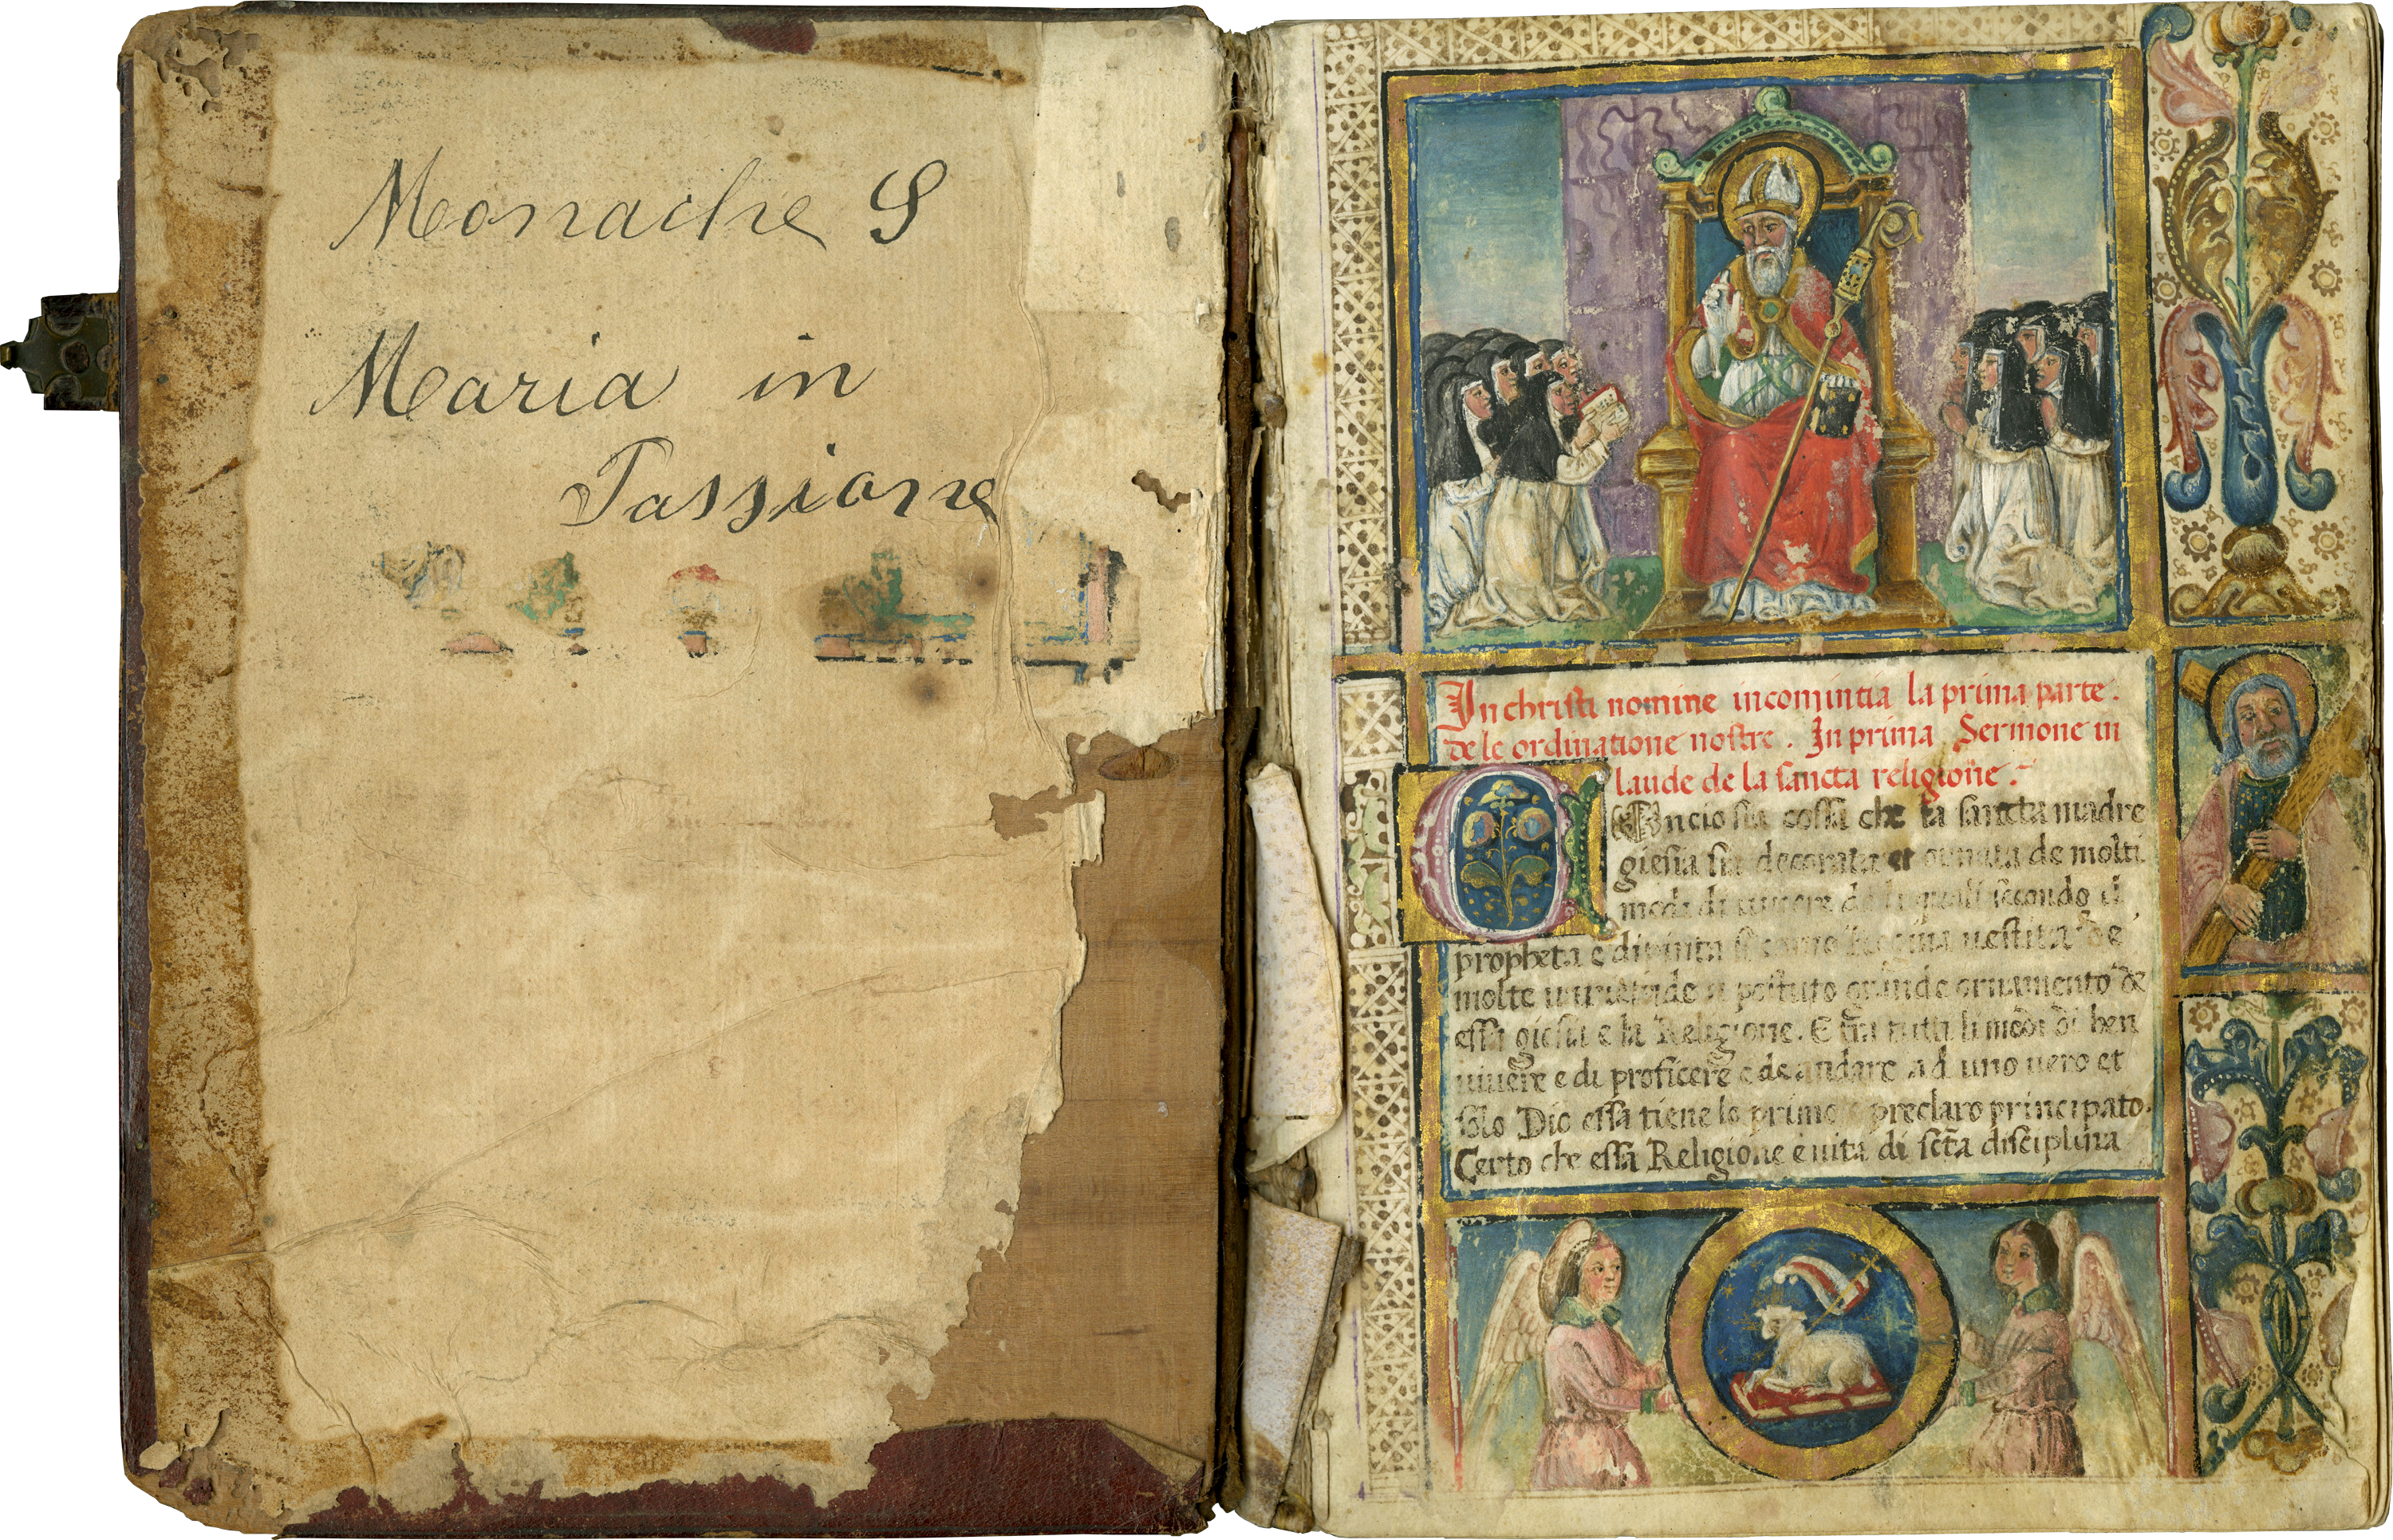 Monache S
Maria in
Passione
In christi nomine incomintia la prima parte.
de le ordinatione nostre. In prima Sermone in
laude de la sancta religione.
Oncio sia cossa che la sancta madre
giesia sia decorata et ornata de molti
modi di vivere de li quali secondo il
propheta e dipinta si come Regina vestita de
molte grande ornamento de
essa giesia e la Religione. E tra tutti li modi di ben
vivere e di proficere e de andare ad uno vero et
solo Dio essa tiene lo primo e preclaro principato.
Certo che essa Religione e vita di scta disciplina